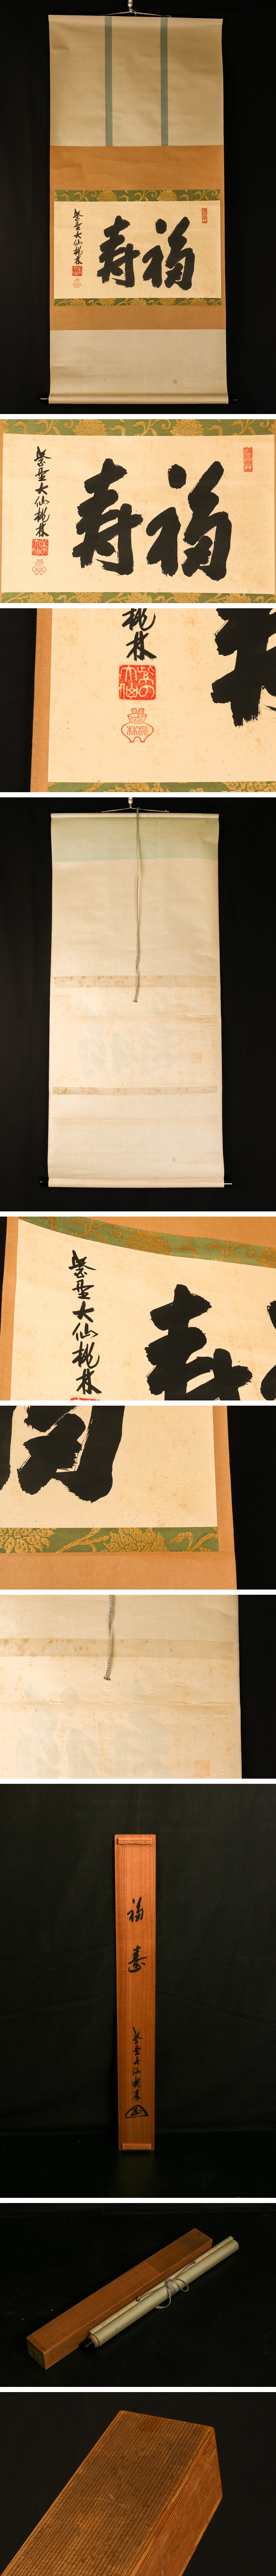 福寿
紫野大仙桃林
福寿
紫野大仙桃林
桃林
紫野大仙桃林
福
壽
紫野大仙桃林